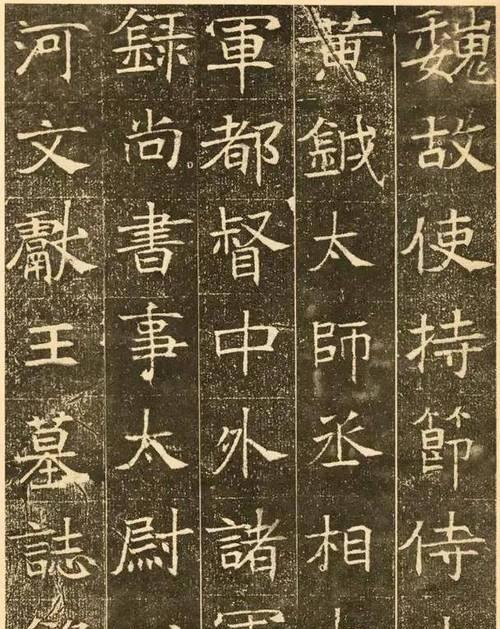 魏故使持節侍
黃鉞太師丞相
軍都督中外諸軍
録尚書事太尉
河文獻王墓誌